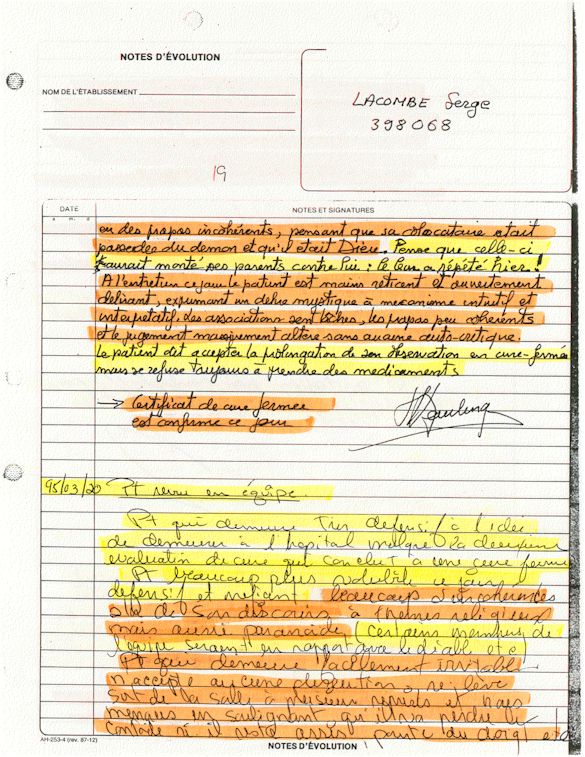 NOTES D'ÉVOLUTION
NOM DE L'ÉTABLISSEMENT
LACOMBE Serge
398068
19
DATE
a m. d
NOTES ET SIGNATURES
en des propos incohérents, pensant que sa colocataire était
possédée du demon et qu'il était Dieu. Pense que celle-ci
aurait monté ses parents contre lui : le leur a répété hier.
A l'entretien ce jour le patient est moins réticent et ouvertement
délirant, exprimant un délire mystique à mécanisme intuitif et
interprétatif. les associations sont lâches, les propos peu cohérents
et le jugement massivement altéré sans aucune auto-critique.
Le patient dit accepter la prolongation de son observation en cure-fermée
mais se refuse toujours à prendre des medicaments
→ Certificat de cure fermée
est confirmé ce jour
95/03/20 Pt revu en équipe.
Pt qui demeure très défensif à l'idée
de demeurer à l'hopital malgré la deuxième
evaluation de cure qui conclut à une cure fermée
Pt beaucoup plus volubile ce jour
défensif et méfiant beaucoup d'incohérences
de son discours à thèmes religieux
mais aussi paranoide (certains membres de
l'équipe seraient en rapport avec le diable etc
Pt qui demeure facilement irritable
n'accepte aucune discussion, se lève
sort de la salle à plusieurs reprises et nous
menace en soulignant qu'il va perdre le
contrôle s'il reste assis, pointe du doigt etc
AH-253-4 (rev. 87-12)
NOTES D'ÉVOLUTION